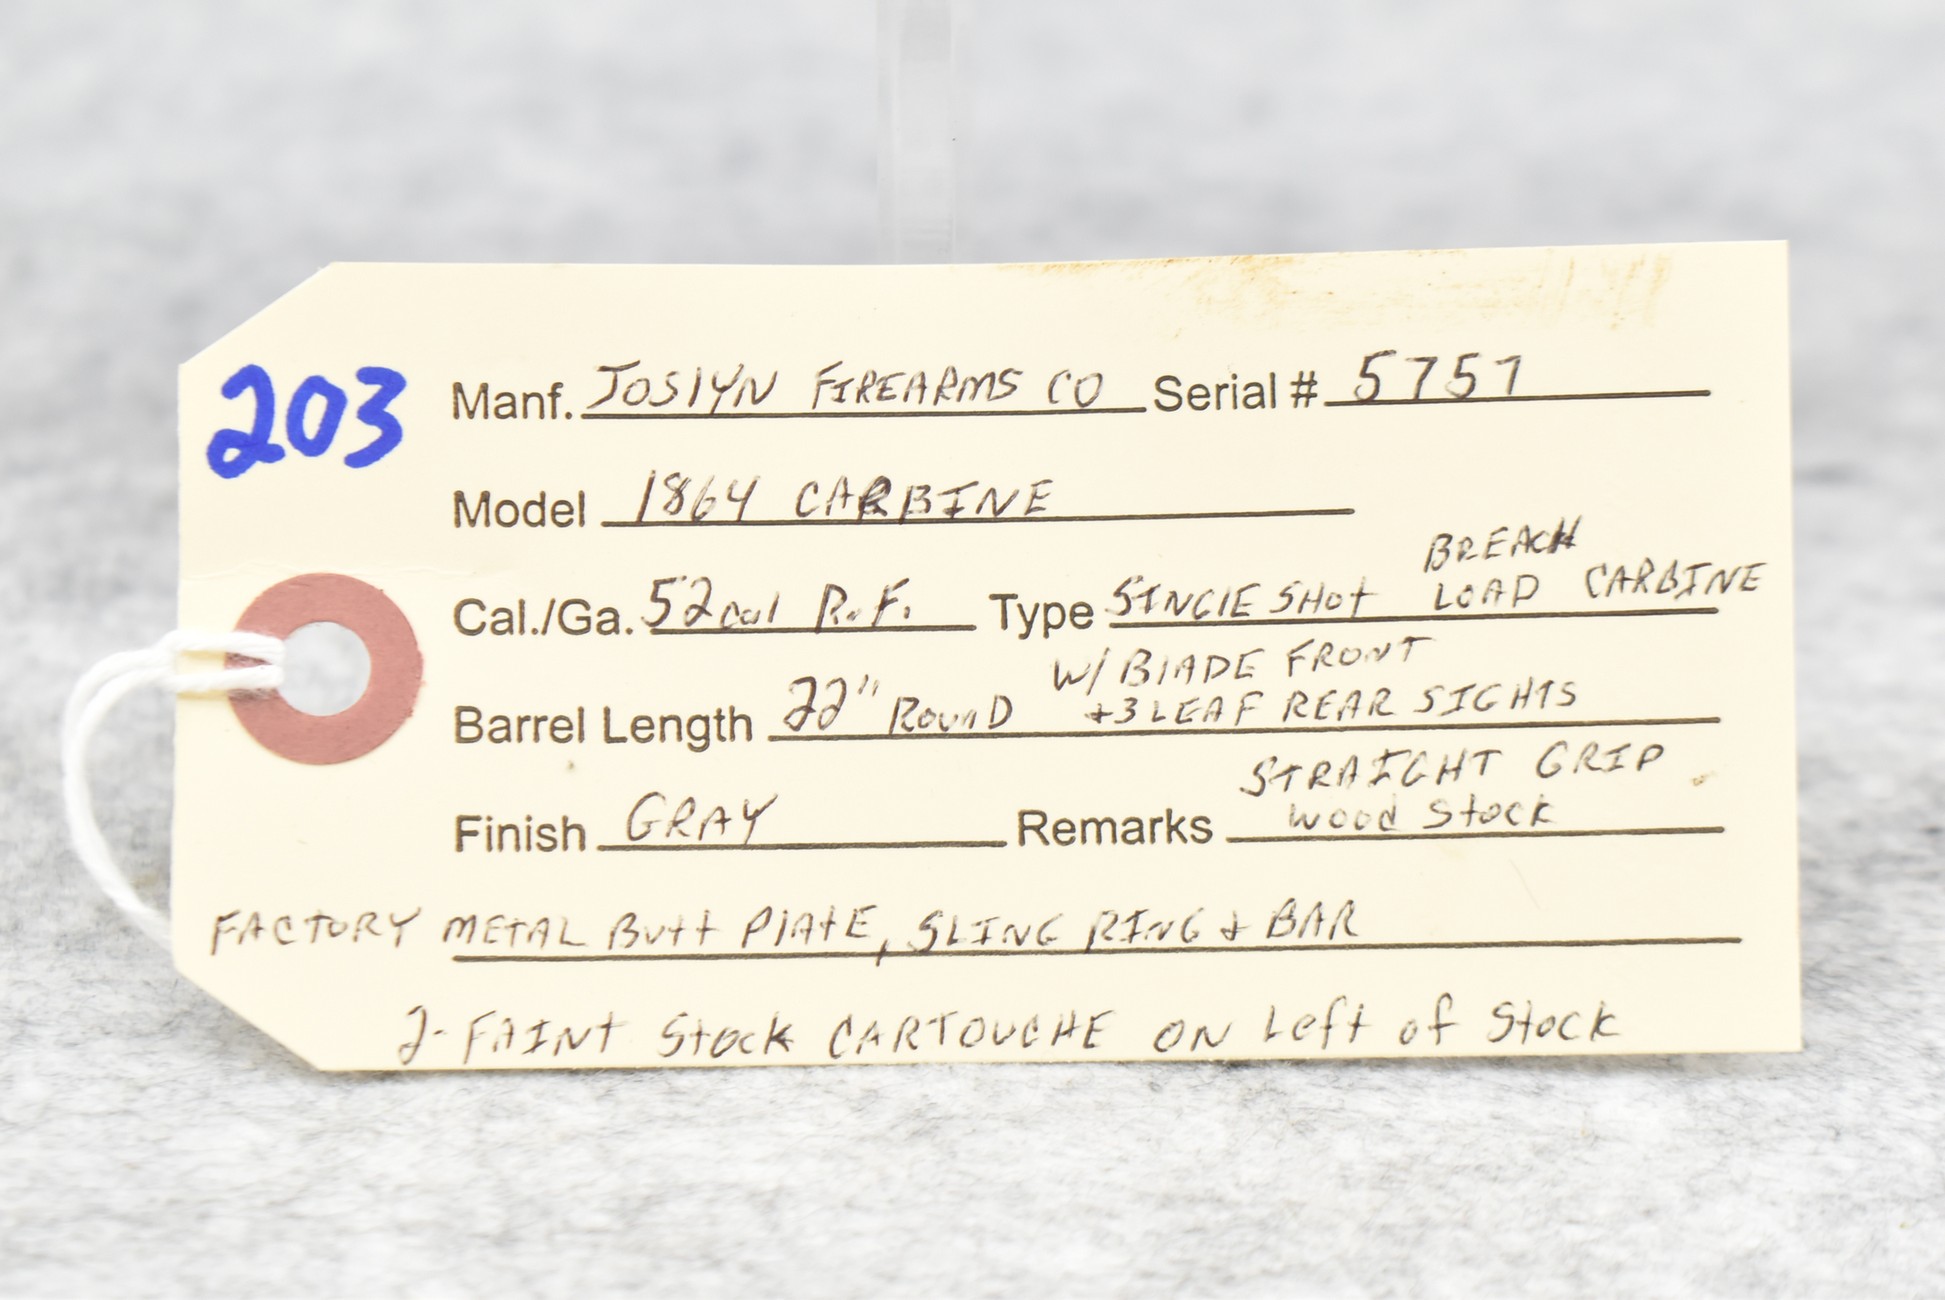 203
Manf. JOSlYN FIREARMS CO Serial # 5757
Model 1864 CARBINE
Cal./Ga. 52cal R.F. Type SINGlE SHot BREACH LOAD CARBINE
Barrel Length 22" RounD W/ BlADE FRONT +3 LEAF REAR SIGHTS
Finish GRAY Remarks STRAIGHT GRIP Wood Stock
FACTORY METAL Butt PlAtE, SLING RING & BAR
2-FAINT Stock CARTOUCHE ON Left of Stock